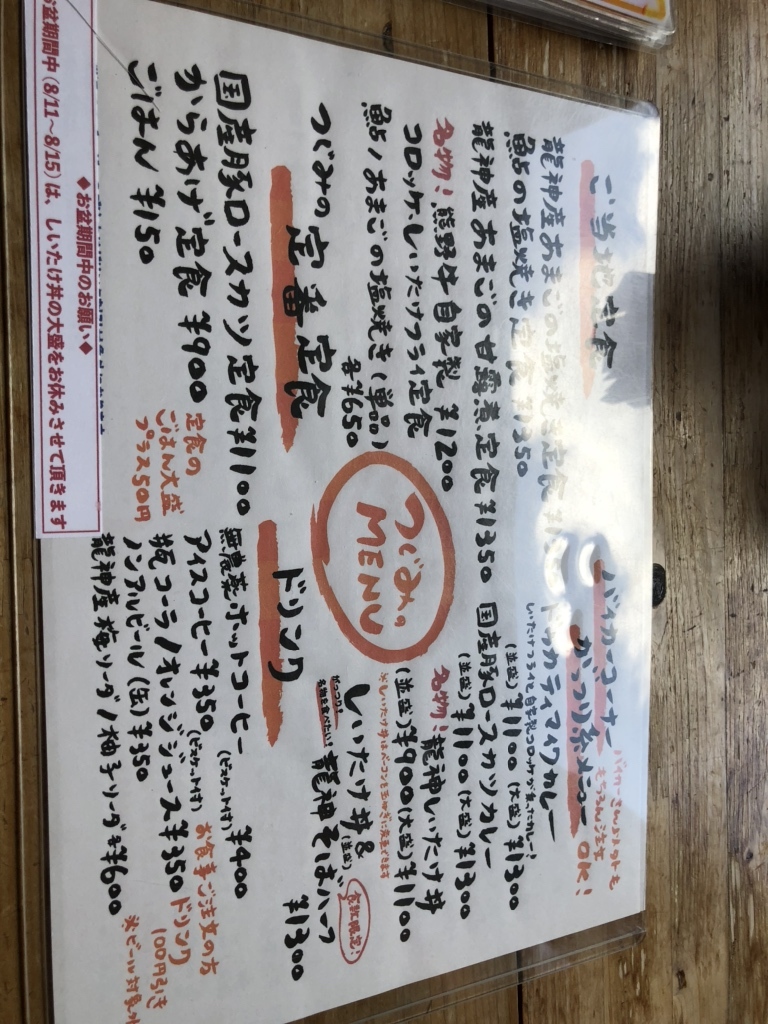 ご当地定食
龍神産あまごの塩焼き定食
鮎の塩焼き定食 ¥1350
龍神産あまごの甘露煮定食 ¥1350
名物!熊野牛自家製 ¥1200
コロッケ、しいたけフライ定食
鮎/あまごの塩焼き(単品)
各¥650
つぐみの定番定食
国産豚ロースカツ定食 ¥1100
からあげ定食 ¥900
ごはん ¥150
定食の
ごはん大盛
プラス50円
つぐみの。
MENU
バイカーコーナー
がっつり系メニュー
バイカーさん以外も
もちろん注文
OK!
ドゥカティマイワカレー
しいたけフライと自家製コロッケが乗ったカレー!
(並盛)¥1100(大盛)¥1300
国産豚ロースカツカレー
(並盛)¥1100(大盛)¥1300
名物!龍神しいたけ丼
(並盛)¥900(大盛)¥1100
※しいたけ丼はベーコンを玉ねぎに変更できます
がっつり!
名物を食べたい!
しいたけ丼&
(並盛)
龍神そばハーフ
¥1300
食数限定!
ドリンク
無農薬ホットコーヒー
(ビスケット付)¥400
アイスコーヒー ¥350
(ビスケット付)
瓶コーラ/オレンジジュース ¥350
ノンアルビール(缶)¥350
龍神産梅ソーダ/柚子ソーダ 各¥600
お食事ご注文の方
ドリンク
100円引き
※ビール対象外
◆お盆期間中のお願い◆
お盆期間中(8/11~8/15)は、しいたけ丼の大盛をお休みさせて頂きます